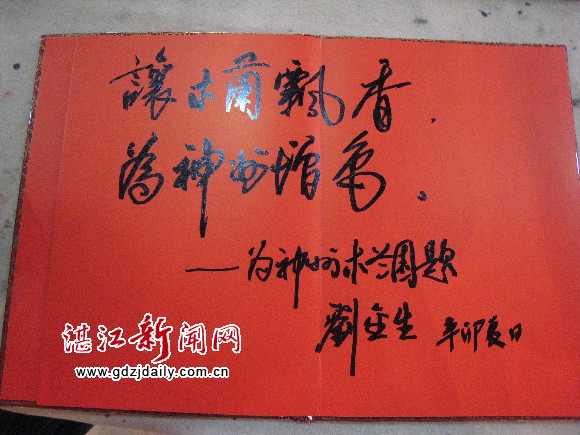 讓木蘭飄香，
為神州增色。
——为神州木兰园题
劉金生 辛卯夏日
湛江新闻网
www.gdzjdaily.com.cn